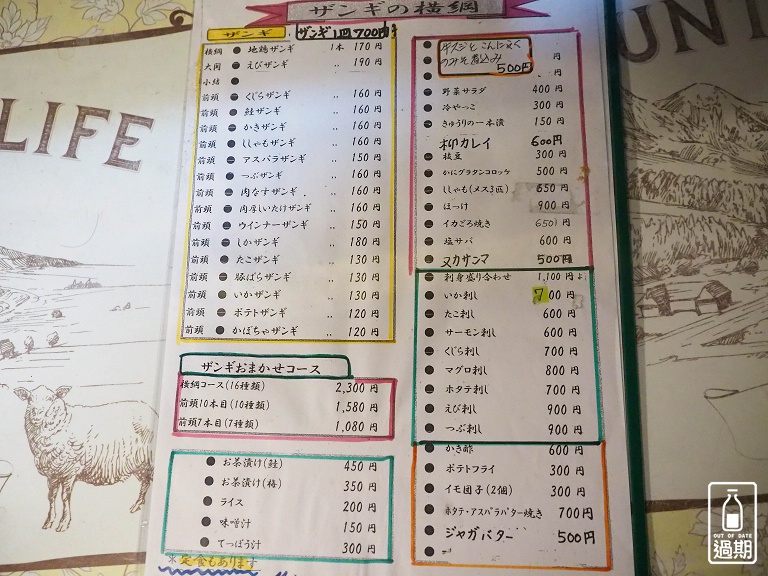 ザンギの横綱
ザンギ
ザンギ1皿700円
横綱 ● 地鶏ザンギ 1本 170円
大関 ● えびザンギ 〃 190円
小結 ●
前頭 ● くじらザンギ 〃 160円
前頭 ● 鮭ザンギ 〃 160円
前頭 ● かきザンギ 〃 160円
前頭 ● ししゃもザンギ 〃 160円
前頭 ● アスパラザンギ 〃 150円
前頭 ● つぶザンギ 〃 160円
前頭 ● 肉なすザンギ 〃 160円
前頭 ● 肉厚しいたけザンギ 〃 160円
前頭 ● ウインナーザンギ 〃 150円
前頭 ● しかザンギ 〃 180円
前頭 ● たこザンギ 〃 130円
前頭 ● 豚ばらザンギ 〃 130円
前頭 ● いかザンギ 〃 130円
前頭 ● ポテトザンギ 〃 120円
前頭 ● かぼちゃザンギ 〃 120円
ザンギおまかせコース
横綱コース(16種類) 2,300円
前頭10本目(10種類) 1,580円
前頭7本目(7種類) 1,080円
● お茶漬け(鮭) 450円
● お茶漬け(梅) 350円
● ライス 200円
● 味噌汁 150円
● てっぽう汁 300円
※定食もあります
牛スジとこんにゃく
のみそ煮込み
500円
円
円
● 野菜サラダ 400円
● 冷やっこ 300円
● きゅうりの一本漬 150円
● 柳カレイ 600円
● 枝豆 300円
● かにグラタンコロッケ 500円
● ししゃも(メス3匹) 650円
● ほっけ 900円
● イカごろ焼き 650円
● 塩サバ 600円
● ヌカサンマ 500円
● 刺身盛り合わせ 1,100円より
● いか刺し 700円
● たこ刺し 600円
● サーモン刺し 600円
● くじら刺し 700円
● マグロ刺し 800円
● ホタテ刺し 700円
● えび刺し 900円
● つぶ刺し 900円
● かき酢 600円
● ポテトフライ 300円
● イモ団子(2個) 300円
● ホタテ・アスパラバター焼き 700円
● ジャガバター 500円
LIFE
UNT
OUT OF DATE
過期